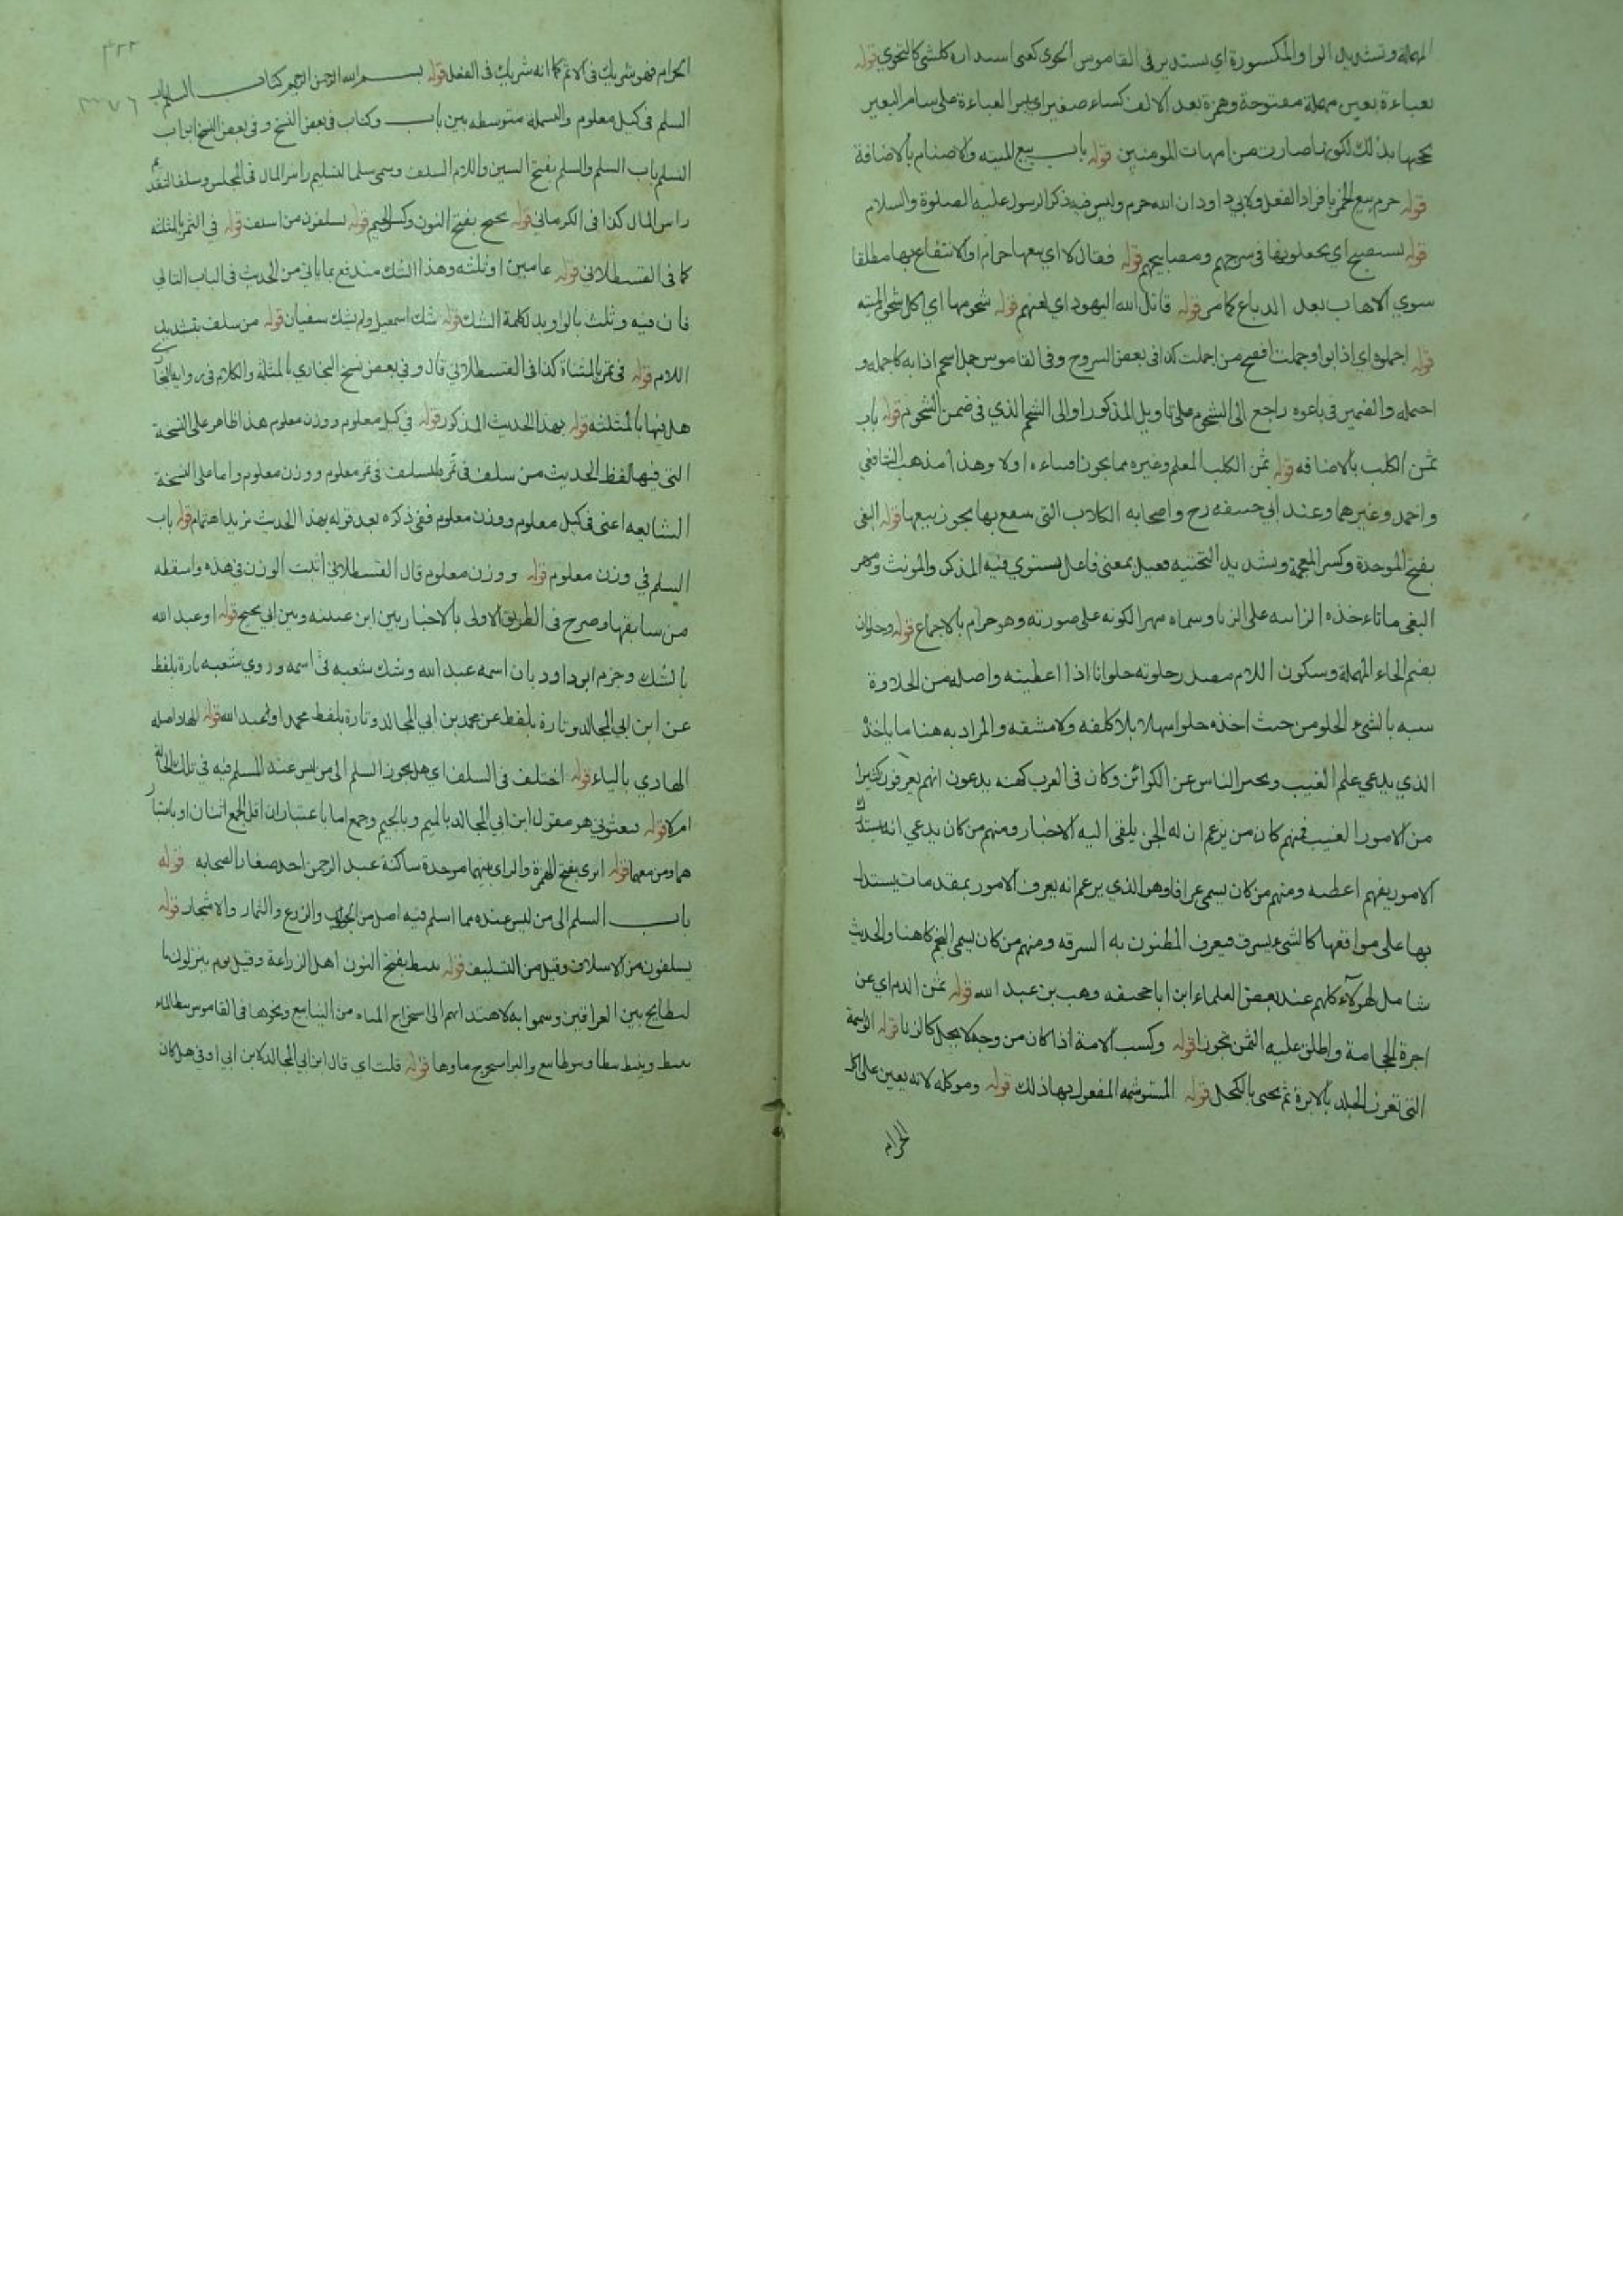 المهملة وتشديد الواو المكسورة اي يستدير في القاموس الحوي كغني استدارة كل شي كالتحوي قوله
بعباءة بعين مهملة مفتوحة وهمزة بعد الالف كساء صغير اي يسر العباءة على سنام البعير
يحجبها بذلك لكونها صارت من امهات المومنين قوله باب بيع الميته والاصنام بالاضافة
قوله حرم بيع الخمر بافراد الفعل ولابي داود ان الله حرم وليس فيه ذكر الرسول عليه الصلوة والسلام
قوله يستصبح اي يجعلونها في سرجهم ومصابيحهم قوله فقال لا اي بيعها حرام او الانتفاع بها مطلقا
سوي الاهاب بعد الدباغ كما مر قوله قاتل الله اليهود اي لعنهم قوله شحومها اي اكل شحوم الميته
قوله اجملوه اي اذابوا وجملت افصح من اجملت كذا في بعض الشروح وفي القاموس جمل الشحم اذابه كاجمله و
اجتمله والضمير في باعوه راجع الى الشحوم على تاويل المذكور او الى الشحم الذي في ضمن الشحوم قوله باب
ثمن الكلب بالاضافه قوله ثمن الكلب المعلم وغيره مما يجوز اقتناءه او لا وهذا مذهب الشافعي
واحمد وغيرهما وعند ابي حنيفه رح واصحابه الكلاب التي ينتفع بها يجوز بيعها قوله البغي
بفتح الموحدة وكسر المعجمة وتشديد التحتيه فعيل بمعنى فاعل يستوي فيه المذكر والمونث ومهر
البغي ما تاءخذه الزانيه على الزنا وسماه مهرا لكونه على صورته وهو حرام بالاجماع قوله وحلوان
بضم الحاء المهملة وسكون اللام مصدر حلوته حلوانا اذا اعطيته واصله من الحلاوة
شبه بالشيء الحلو من حيث اخذه حلوا سهلا بلا كلفه ولا مشقه والمراد به هنا ما ياخذه
الذي يدعي علم الغيب ويخبر الناس عن الكوائن وكان في العرب كهنه يدعون انهم يعرفون كثيرا
من الامور الغيب فمنهم كان من يزعم ان له الجن يلقى اليه الاخبار ومنهم من كان يدعي انه يستدرك
الامور بفهم اعطيه ومنهم من كان يسمى عرافا وهو الذي يزعم انه يعرف الامور بمقدمات يستدل
بها على مواقعها كالشيء يسرق فيعرف المظنون به السرقه ومنهم من كان يسمي المنجم كاهنا والحديث
شامل لهولاء كلهم عند بعض العلماء ابن ابا جحيفه وهب بن عبد الله قوله ثمن الدم اي عن
اجرة الحجامة واطلق عليه الثمن تجوزا قوله وكسب الامة اذا كان من وجه لا يحل كالزنا قوله الواشمة
التي تغرز الجلد بالابرة ثم يحشى بالكحل قوله المستوشمه المفعول بها ذلك قوله وموكله لانه يعين على اكل
الحرام
الحرام فهو شريك في الاثم كما انه شريك في الفعل قوله بسم الله الرحمن الرحيم كتاب السلم باب
السلم في كيل معلوم والبسملة متوسطه بين باب وكتاب في بعض النسخ وفي بعض النسخ ابواب
السلم باب السلم والسلم بفتح السين واللام السلف وسمي سلما لتسليم راس المال في المجلس وسلفا لتقديم
راس المال كذا في الكرماني قوله نجيح بفتح النون وكسر الجيم قوله يسلفون من اسلف قوله في الثمر بالمثلثه
كما في القسطلاني قوله عامين او ثلثه وهذا الشك مندفع بما ياتي من الحديث في الباب التالي
فان فيه وثلث بالواو بدل كلمة الشك قوله شك اسمعيل ولم يشك سفيان قوله من سلف بتشديد
اللام قوله في تمر بالمثناة كذا في القسطلاني قال وفي بعض نسخ البخاري بالمثلثة والكلام في رواية البخاري
هل فيها بالمثلثه قوله بهذا الحديث المذكور قوله في كيل معلوم ووزن معلوم هذا ظاهر على النسخة
التي فيها لفظ الحديث من سلف في تمر فليسلف في تمر معلوم ووزن معلوم واما على النسخة
الشايعه اعني في كيل معلوم ووزن معلوم ففي ذكره بعد قوله بهذا الحديث مزيد اهتمام قوله باب
السلم في وزن معلوم قوله ووزن معلوم قال القسطلاني اثبت الوزن في هذه واسقطه
من سابقها وصرح في الطريق الاولى بالاخبار بين ابن عيينه وبين ابي نجيح قوله او عبد الله
بالشك وجزم ابوداود بان اسمه عبد الله وشك شعبه في اسمه وروي شعبه تارة بلفظ
عن ابن ابي المجالد وتارة بلفظ عن محمد بن ابي المجالد وتارة بلفظ محمد او عبد الله قوله الهاد اصله
الهادي بالياء قوله اختلف في السلف اي هل يجوز السلم الى من ليس عنده المسلم فيه في تلك الحالة
ام لا قوله فبعثوني هو مقول ابن ابي المجالد بالميم وبالجيم وجمع اما باعتبار ان اقل الجمع اثنان او باعتبار
هما ومن معهما قوله ابزى بفتح الهمزة والزاي بينهما موحدة ساكنة عبد الرحمن احد صغار الصحابه قوله
باب السلم الى من ليس عنده مما اسلم فيه اصل من الحبوب والزرع والثمار والاشجار قوله
يسلفون من الاسلاف وقيل من التسليف قوله نبيط بفتح النون اهل الزراعة وقيل قوم ينزلون
البطايح بين العراقين وسموا به لاهتدائهم الى استخراج المياه من الينابيع ونحوها في القاموس نبط الماء
ينبط وينبط نبطا ونبوطا نبع والبير استخرج ماوها قوله قلت اي قال ابن ابي المجالد لابن ابي اوفي هل كان